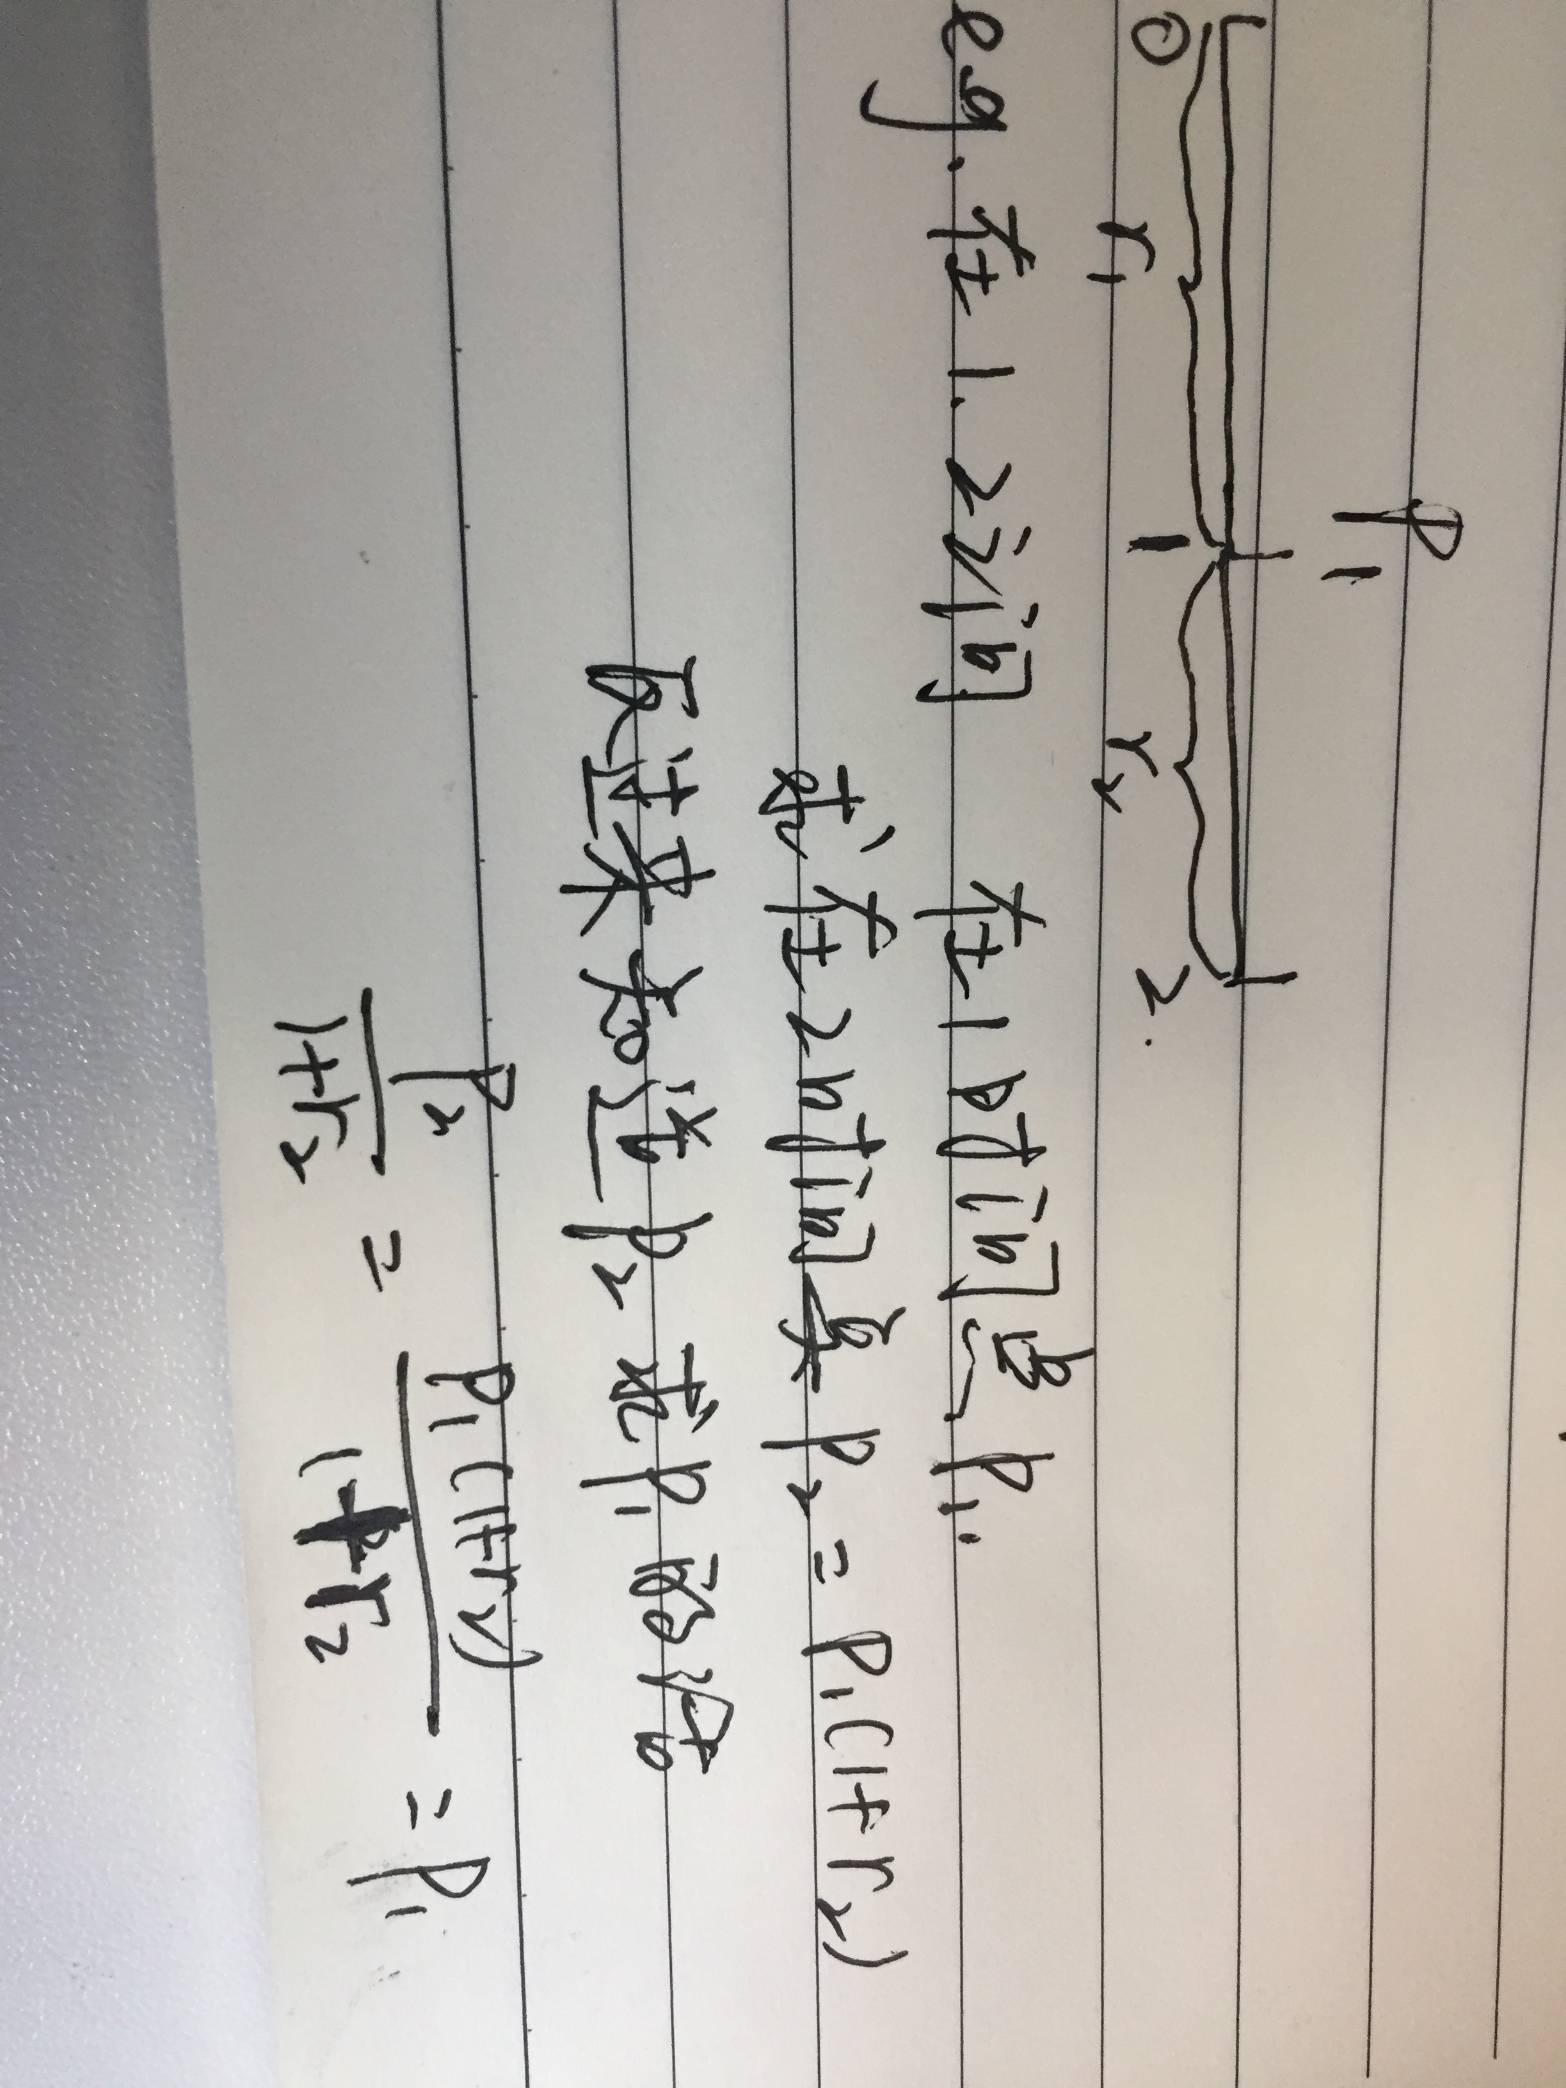 P1
0 r1 1 r2 2.
e.g. 在 1. 2之间 在1时间点 P1.
求在2时间点 P2 = P1(1+r2)
反过来知道 P2 求 P1 的话
P2/(1+r2) = P1(1+r2)/(1+r2) = P1